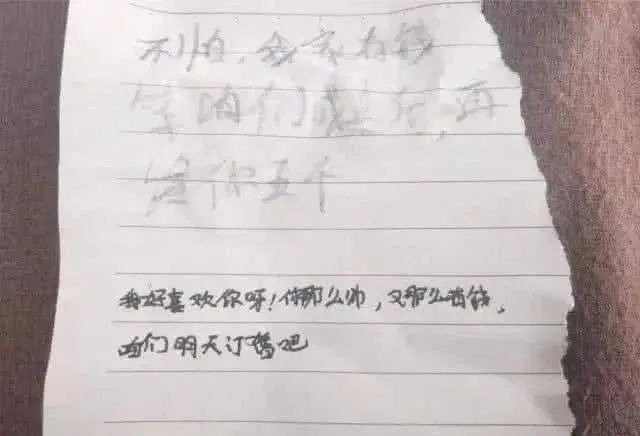 不怕,我家有钱
等咱们结完,再
给你五千
我好喜欢你呀!你那么帅,又那么有钱,
咱们明天订婚吧